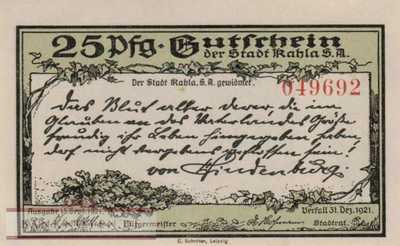 25 Pfg. Gutschein
der Stadt Kahla S.A.
Der Stadt Kahla, S.A. gewidmet.
049692
Das Blut aller derer, die im
Glauben an des Vaterlandes Größe
freudig ihr Leben hingegeben haben,
darf nicht vergebens geflossen sein!
von Hindenburg.
Verfall 31. Dez. 1921.
Bürgermeister
Stadtrat
C. Schröter, Leipzig